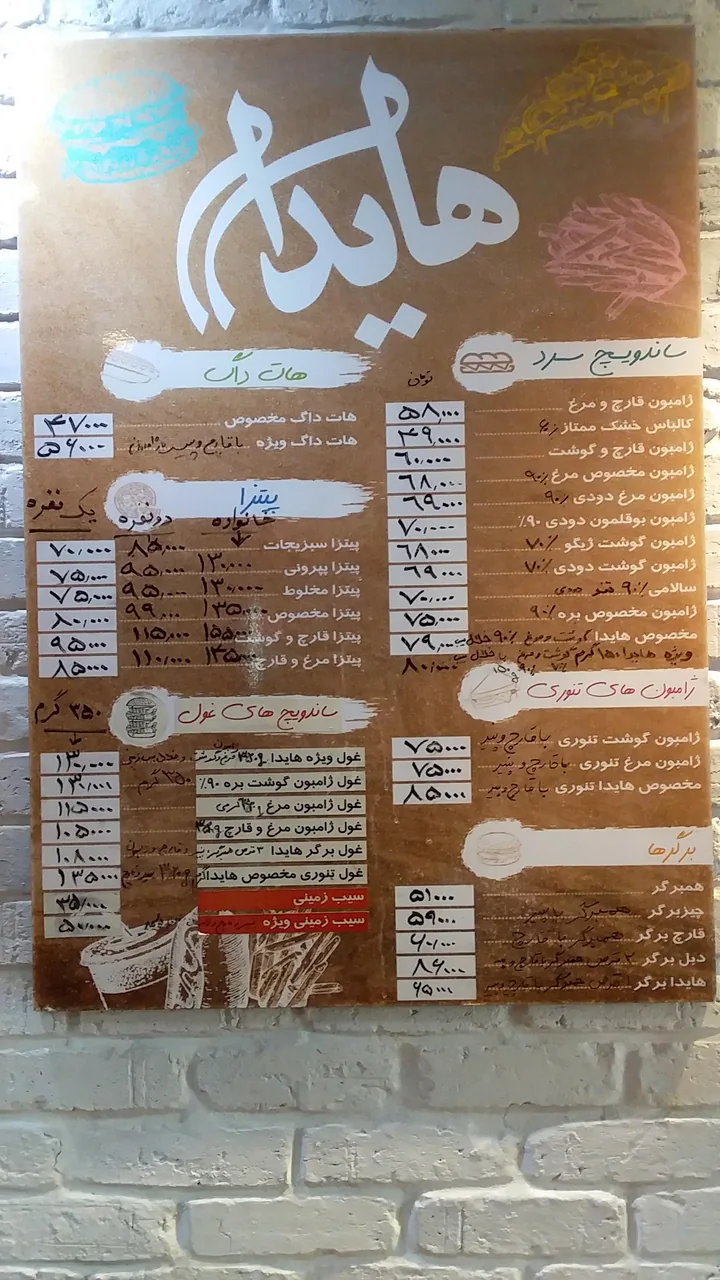 هایدا
ساندویچ سرد
تومان
ژامبون قارچ و مرغ ۵۸,۰۰۰
کالباس خشک ممتاز ۴۹,۰۰۰
ژامبون قارچ و گوشت ۶۰,۰۰۰
ژامبون مخصوص مرغ ۹۰٪ ۶۸,۰۰۰
ژامبون مرغ دودی ۹۰٪ ۶۹۰۰۰
ژامبون بوقلمون دودی ۹۰٪ ۷۰,۰۰۰
ژامبون گوشت ژیگو ۷۰٪ ۶۸۰۰۰
ژامبون گوشت دودی ۷۰٪ ۶۹۰۰۰
سالامی ۹۰٪ ۷۰,۰۰۰
ژامبون مخصوص بره ۹۰٪ ۷۵,۰۰۰
مخصوص هایدا گوشت و مرغ ۹۰٪ ۷۹,۰۰۰
ویژه هایدا ۱۵۰ گرم گوشت و مرغ ۸۰,۰۰۰
ژامبون های تنوری
ژامبون گوشت تنوری با قارچ و پنیر ۷۵۰۰۰
ژامبون مرغ تنوری با قارچ و پنیر ۷۵۰۰۰
مخصوص هایدا تنوری با قارچ و پنیر ۸۵۰۰۰
برگرها
همبرگر ۵۱۰۰۰
چیزبرگر همبرگر با پنیر ۵۹۰۰۰
قارچ برگر همبرگر با قارچ ۶۰,۰۰۰
دبل برگر ۲ قرص همبرگر با قارچ و پنیر ۸۶۰۰۰
هایدا برگر همبرگر با قارچ و پنیر ۶۵۰۰۰
هات داگ
هات داگ مخصوص ۴۷۰۰۰
هات داگ ویژه با قارچ و پنیر ۵۶۰۰۰
پیتزا
خانواده دونفره یک نفره
پیتزا سبزیجات ۸۵,۰۰۰ ۷۰,۰۰۰
پیتزا پپرونی ۱۳۰,۰۰۰ ۹۵,۰۰۰ ۷۵,۰۰۰
پیتزا مخلوط ۱۳۰,۰۰۰ ۹۵,۰۰۰ ۷۵,۰۰۰
پیتزا مخصوص ۱۳۵,۰۰۰ ۹۹,۰۰۰ ۸۰,۰۰۰
پیتزا قارچ و گوشت ۱۵۵,۰۰۰ ۱۱۵,۰۰۰ ۹۵,۰۰۰
پیتزا مرغ و قارچ ۱۴۵,۰۰۰ ۱۱۰,۰۰۰ ۸۵,۰۰۰
ساندویچ های غول
۳۵۰ گرم
غول ویژه هایدا ۱۳۰,۰۰۰
غول ژامبون گوشت بره ۹۰٪ ۳۵۰ گرم ۱۳۰,۰۰۰
غول ژامبون مرغ ۱۱۵,۰۰۰
غول ژامبون مرغ و قارچ ۱۰۵۰۰۰
غول برگر هایدا ۳ قرص همبرگر ۱۰۸۰۰۰
غول تنوری مخصوص هایدا ۱۳۵۰۰۰
سیب زمینی ۳۵,۰۰۰
سیب زمینی ویژه ۵۰,۰۰۰